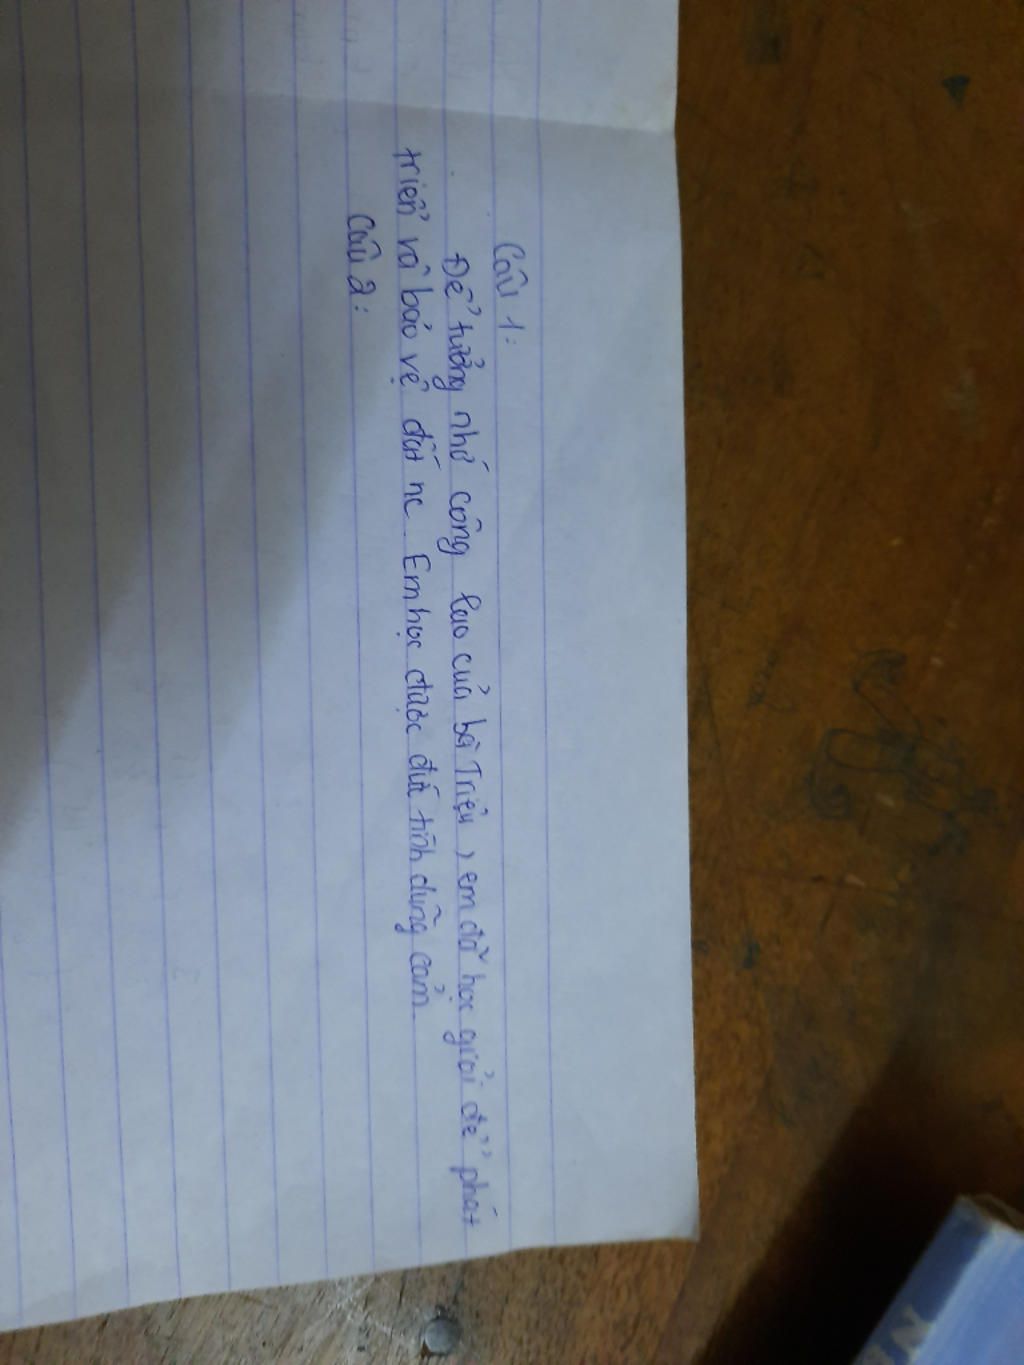 Câu 1:
Để tưởng nhớ công lao của bà Triệu, em đã học giỏi để phát
triển và bảo vệ đất nc. Em học được đức tính dũng cảm.
Câu 2: